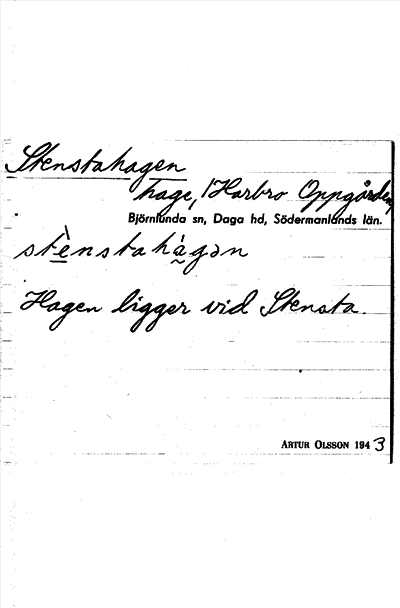 Stenstahagen
hage, /Harbro Oppgården
Björnlunda sn, Daga hd, Södermanlands län.
stènstahà̰gən
Hagen ligger vid Stensta.
ARTUR OLSSON 1943